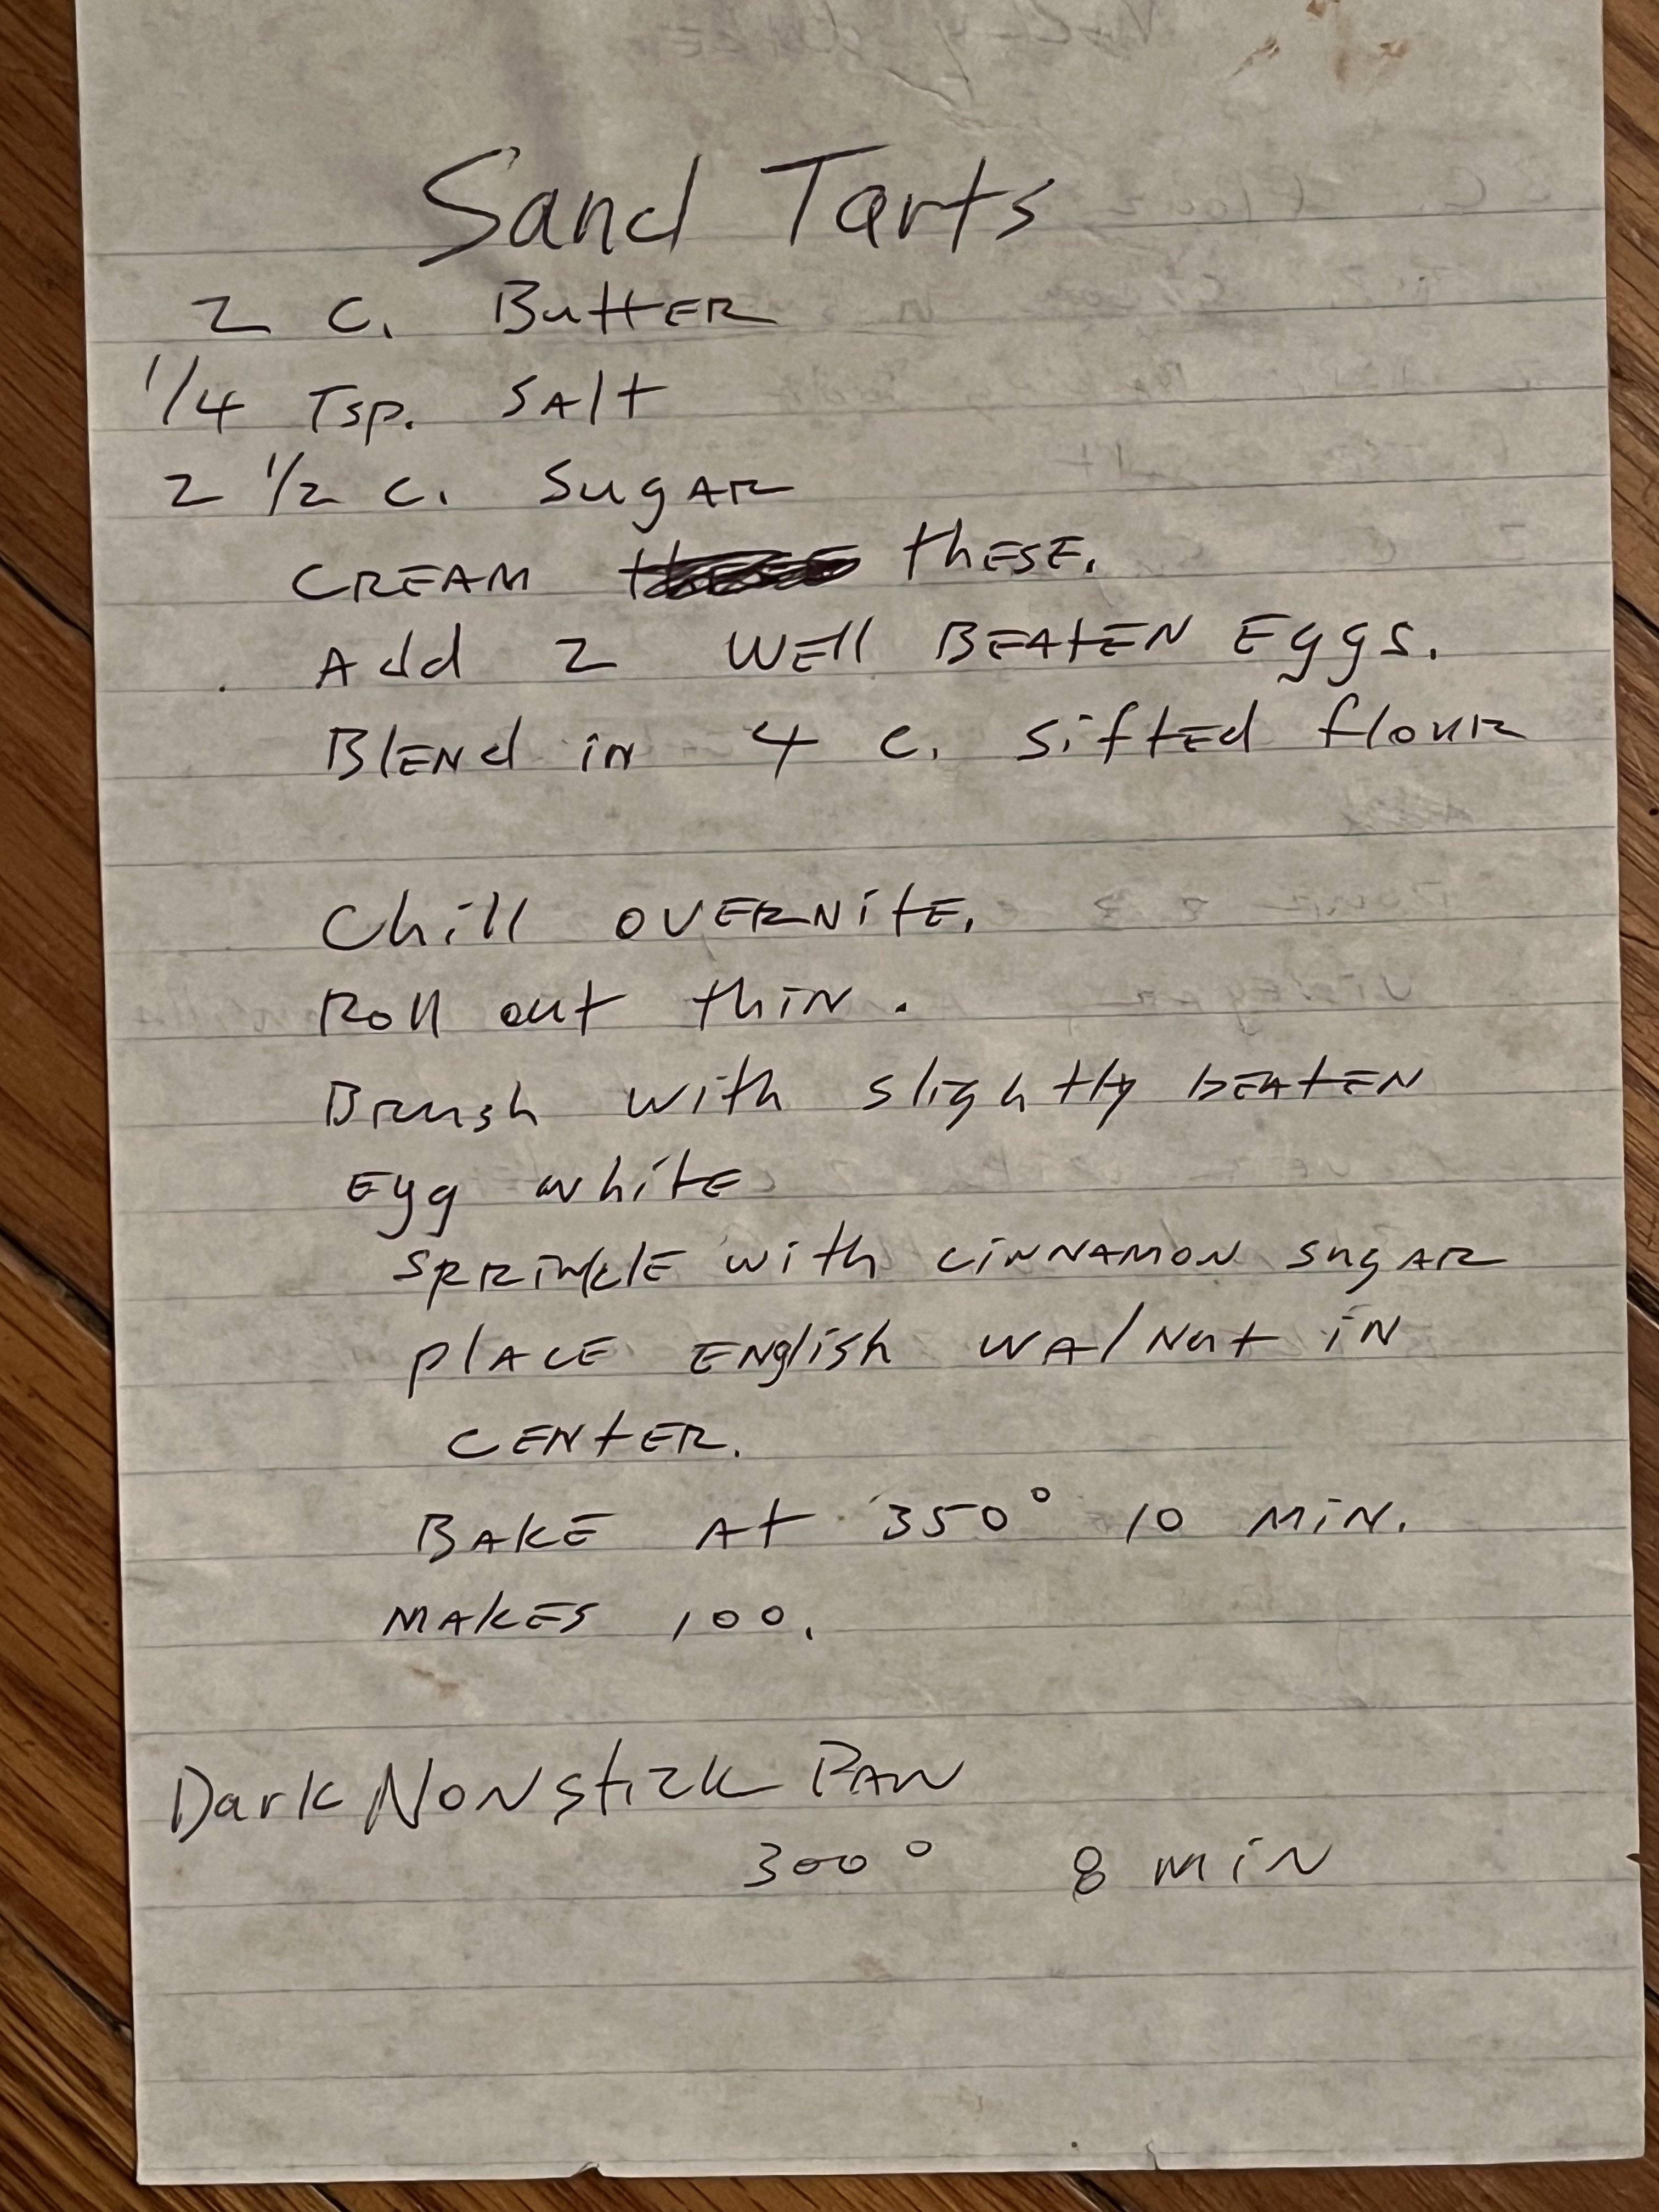 Sand Tarts
2 C. Butter
1/4 Tsp. Salt
2 1/2 C. Sugar
Cream these.
Add 2 well beaten Eggs.
Blend in 4 c. sifted flour
Chill overnite.
Roll out thin.
Brush with slightly beaten
Egg white
sprinkle with cinnamon sugar
place English walnut in
center.
Bake at 350° 10 min.
makes 100.
Dark Nonstick Pan
300° 8 min